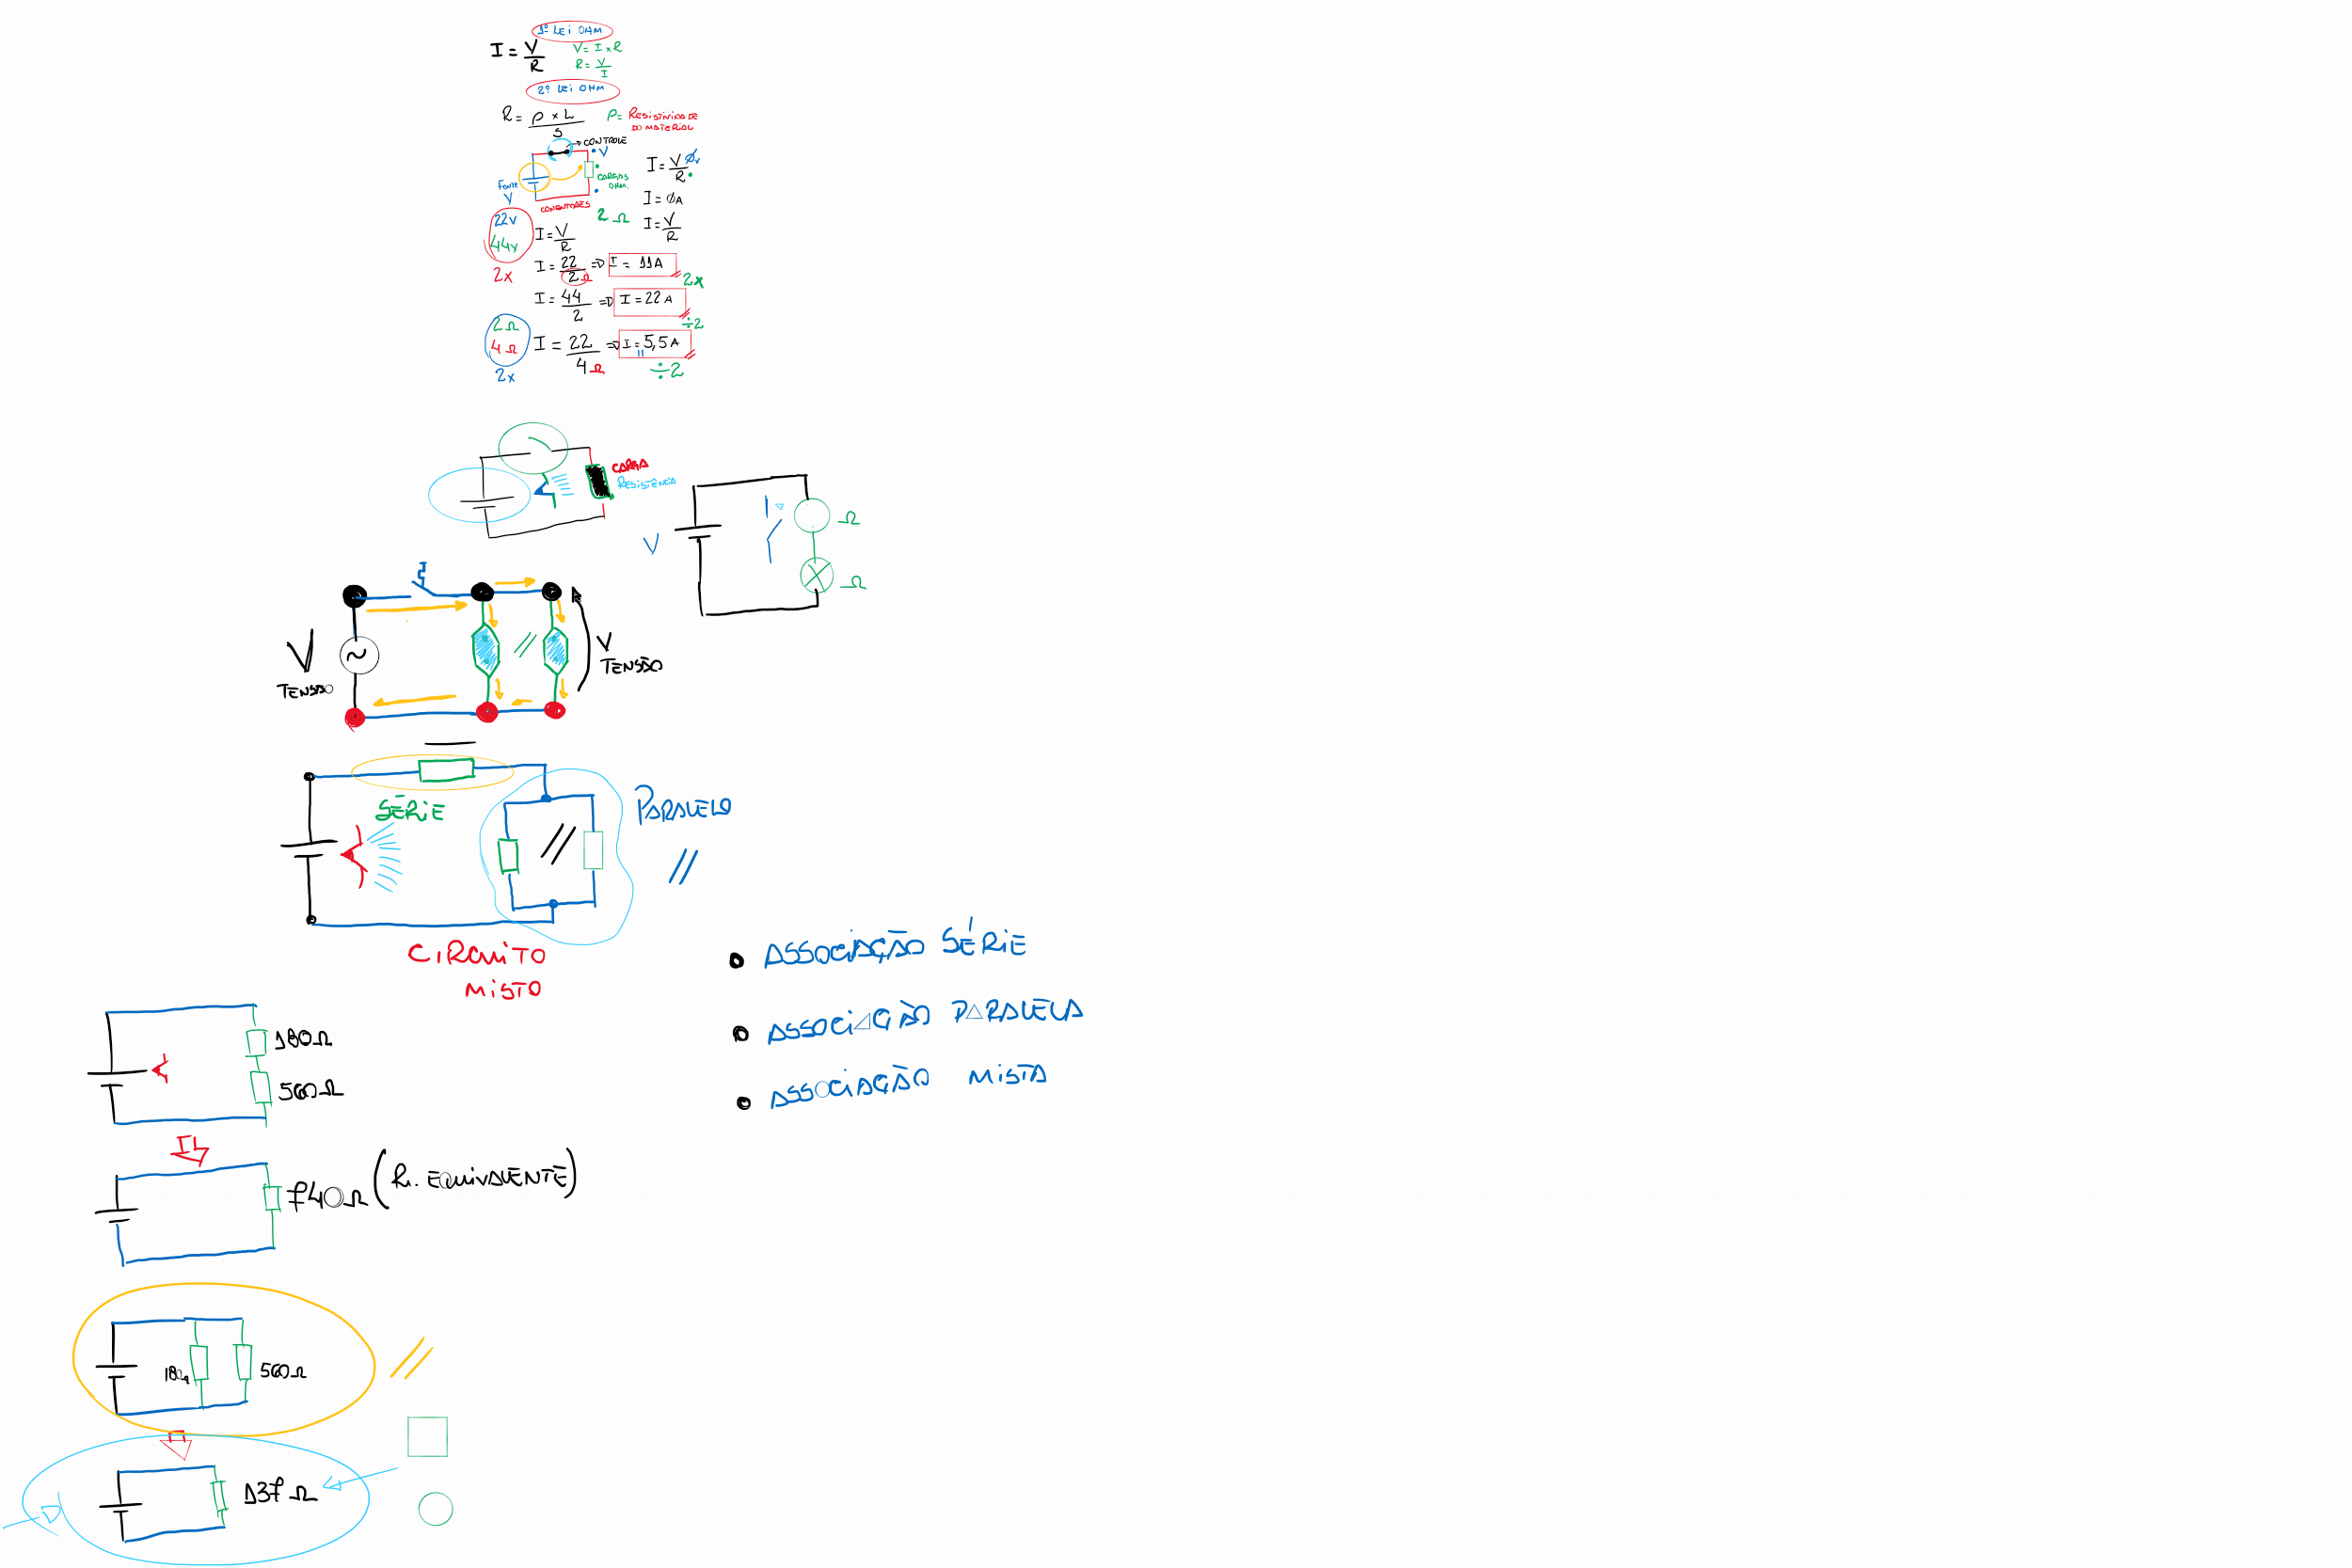 1º LEI OHM
I = V/R
V = I x R
R = V/I
2º LEI OHM
R = ρ x L / S
ρ = RESISTIVIDADE
DO MATERIAL
CONTROLE
V
I = V/R
ØV
CARGAS
OHM.
FONTE
V
CONDUTORES
I = ØA
2 Ω
I = V/R
22V
44V
2x
I = V/R
I = 22/2Ω => I = 11A
2x
I = 44/2 => I = 22A
÷2
2 Ω
4 Ω
2x
I = 22/4Ω => I = 5,5A
÷2
CARGA
RESISTÊNCIA
V
Ω
Ω
V
TENSÃO
//
V
TENSÃO
SÉRIE
//
PARALELO
//
CIRCUITO
MISTO
• ASSOCIAÇÃO SÉRIE
• ASSOCIAÇÃO PARALELA
• ASSOCIAÇÃO MISTA
180Ω
560Ω
740Ω (R. EQUIVALENTE)
180Ω
560Ω
//
137 Ω